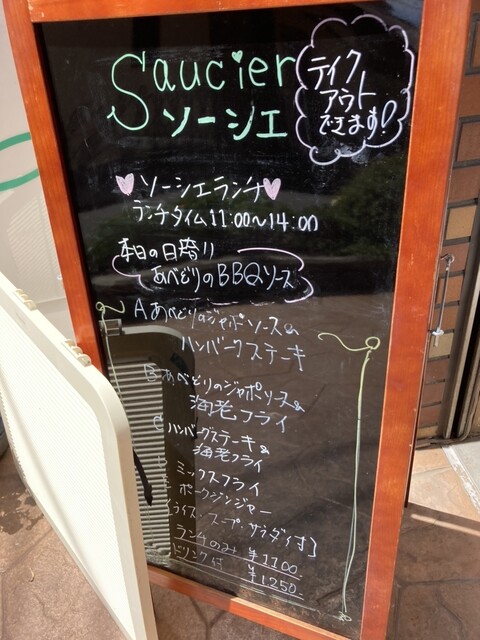 Saucier
ソーシェ
テイク
アウト
できます!
ソーシェランチ
ランチタイム11:00～14:00
本日の日替り
あべどりのBBQソース
A あべどりのジャポソース&
ハンバーグステーキ
B あべどりのジャポソース&
海老フライ
C ハンバーグステーキ&
海老フライ
ミックスフライ
ポークジンジャー
ライス スープ サラダ付
ランチのみ ¥1100
ドリンク付 ¥1250-